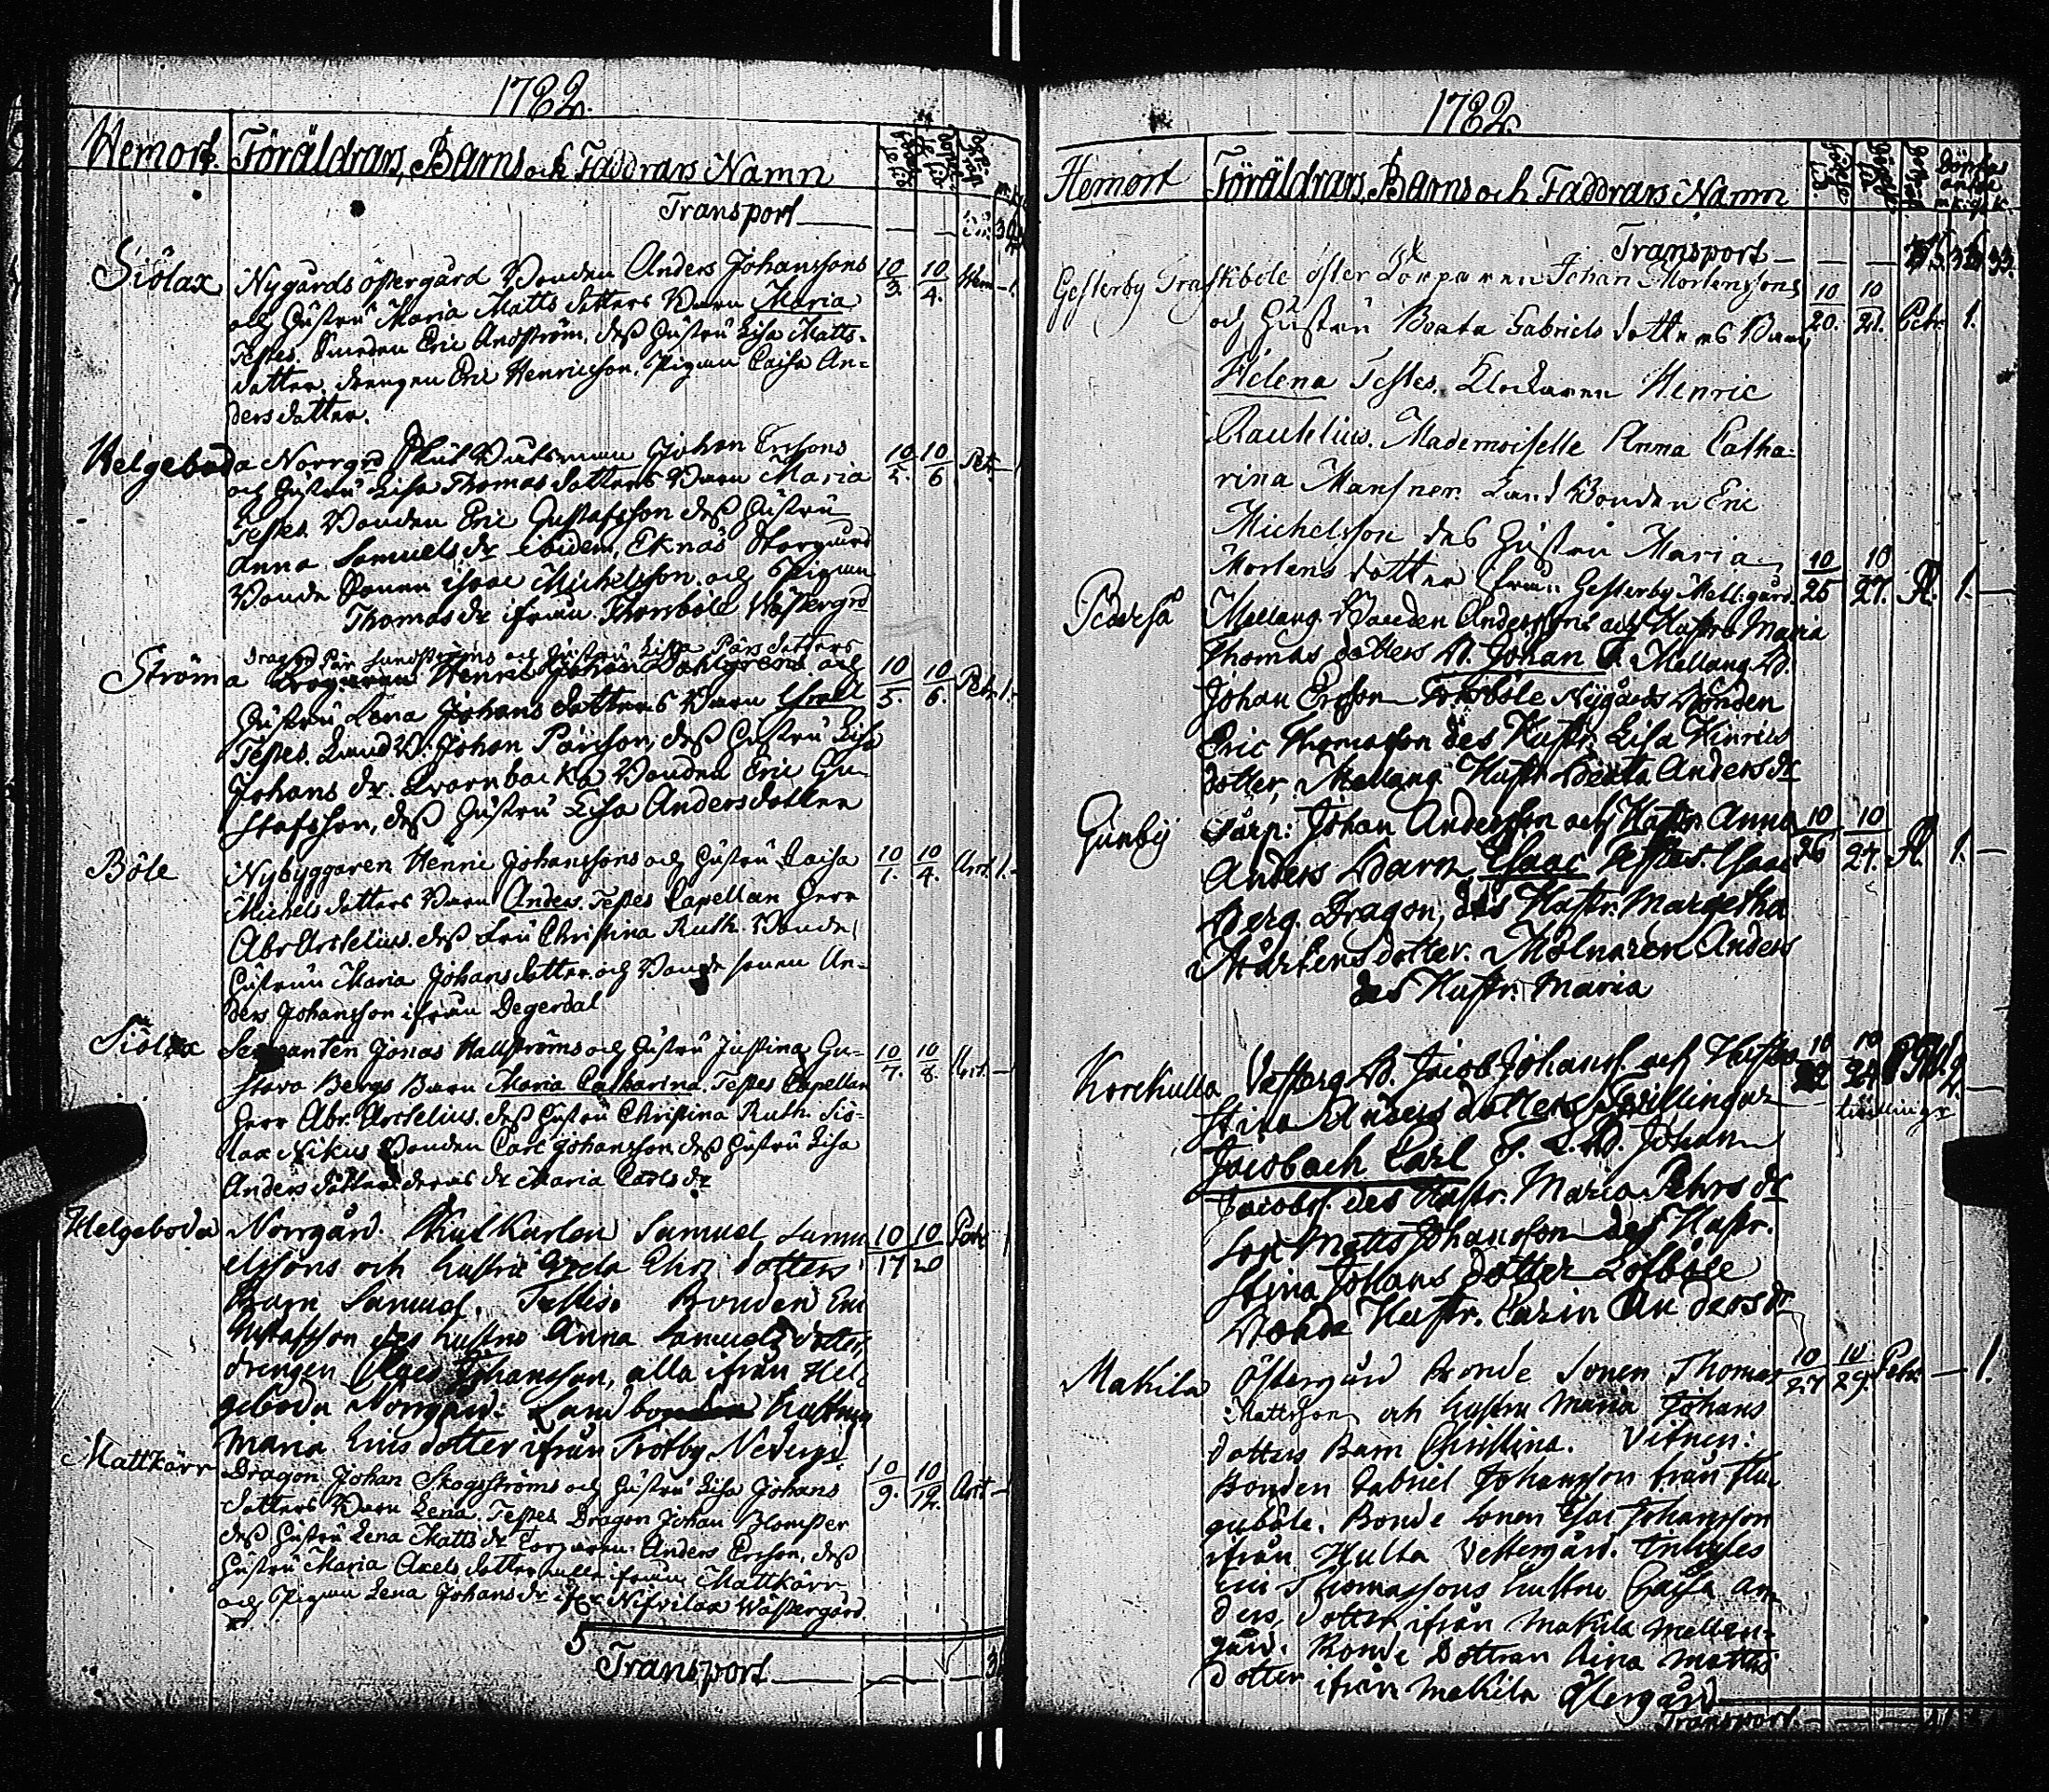 1782.
Hemort. Föräldrars, Barns och Faddrars Namn
Transport
Siölax Nygårds östergård Bonden Anders Johanssons 10/3. 10/4. Hem 1.
och Hustru Maria Matts dotters Barn Maria
Testes. Smeden Eric Andström, dess Hustru Lisa Matts-
dotter, drengen Eric Henricsson, Pigan Caisa An-
dersdotter.
Helgeboda Norrgrd Johan Erssons 10/5. 10/6. Petr.
och Hustru Lisa Thomas dotters Barn Maria
Testes. Bonden Eric Gustafsson dess Hustru
Anna Samuels dr ibidem, Eknäs Storgård
Bonde Sonen Isaac Michelsson och Pigan
Thomas dr ifrån Thorsböle Wästergrd
Dragon Pär Lundströms och Hustru Lisa Pärs dotters
Ströma Henric Johan Dahlgrens och 10/5. 10/6. Petr. 1.
Hustru Lena Johans dotters Barn
Testes. Land B. Johan Pärsson, dess Hustru Lisa
Johans dr. Qvarnbacka Bonden Eric Gu-
stafsson, dess Hustru Lisa Andersdotter
Böle Nybyggaren Henric Johanssons och Hustru Caisa 10/1. 10/4. Arct. 1.
Michels dotters Barn Anders. Testes Capellan Herr
Abr Arctelius. dess Fru Christina Ruth. Bonde
Hustrun Maria Johans dotter och Bonde sonen An-
ders Johansson ifrån Degerdal
Siölax Sergeanten Jonas Hallströms och Hustru Justina Gu- 10/7. 10/8. Arct.
stava Bergs Barn Maria Catharina. Testes Capellan
Herr Abr. Arctelius. dess Hustru Christina Ruth. Siö-
lax Nikus Bonden Carl Johansson dess Hustru Lisa
Anders dotter. deras dr Maria Carls dr
Helgeboda Norrgård. Samuel Samu 10/17 10/20 Petr 1
elssons och hustru Greta dotters
Barn Samuel. Testes. Bonden Eric
Gustafsson des hustru Anna Samuels dotter,
drengen Claes Johansson, alla ifrån Hel-
geboda Norrgård. Land hustrun
Maria Erics dotter ifrån Trotby Nedergd.
Mattkärr Dragon Johan Skogströms och Hustru Lisa Johans 10/9. 10/12. Arct
dotters Barn Lena. Testes Dragon Johan Blomster
dess Hustru Lena Matts dr Torparen Anders Ersson, dess
Hustru Maria Axels dotter alla ifrån Mattkärr
och Pigan Lena Johans dr Nifvilax Wästergård.
Transport
1782.
Hemort Föräldrars, Barns och Faddrars Namn
Transport
Gesterby Träskböle öster Torparen Johan Mortenssons 10/20. 10/21. Petr. 1.
och Hustru Beata Gabriels dotters Barn
Helena Testes. Klockaren Henric
Rauhelius. Mademoiselle Anna Catha-
rina Mansner. Land Bonden Eric
Michelsson des Hustru Maria
Mortens dotter från Gesterby Mell:gård.
Pederså Mellang. Bonden Anders och Hustru Maria 10/25 10/27. A. 1.
Thomas dotters B. Johan T. Mellang. B.
Johan Ersson böle Nygårds Bonden
Eric Thomasson des Hustr. Lisa Hinrics
dotter, Mellang. Hustr. Beata Anders dr
Gunby Torp: Johan Andersson och Hustr. Anna 10/26 10/27. A. 1.
Anders Barn, Isaac Testes Isaac
Berg. Dragon, des Hustr. Margetha
Mårtensdotter. Mölnaren Anders
des Hustr. Maria
Korskulla Vesterg. B. Jacob Johans. och Hustru 10/22 10/24 2.
Stina Anders dotters Tvillingar tvillingr
Jacob och Carl T. L. B. Johan
Jacobs. des Hustr. Maria Pehrs dr
Matts Johansson des Hustr.
Stina Johans dotter Löfböle
Bonde Hustr. Carin Anders dr
Makila Östergård Bonde Sonen Thomas 10/27 10/29. Petr. 1.
Mattssons och hustru Maria Johans
dotters Barn Christina. Vitnen:
Bonden Gabriel Johansson från Flu-
guböle. Bonde Sonen Esai Johansson
ifrån Hulta Vestergård. Inhyses
Eric Thomassons hustru Caisa An-
ders dotter ifrån Makila Mellen-
gård. Bonde Dottran Stina Matts
dotter ifrån Makila Östergård
Transport.